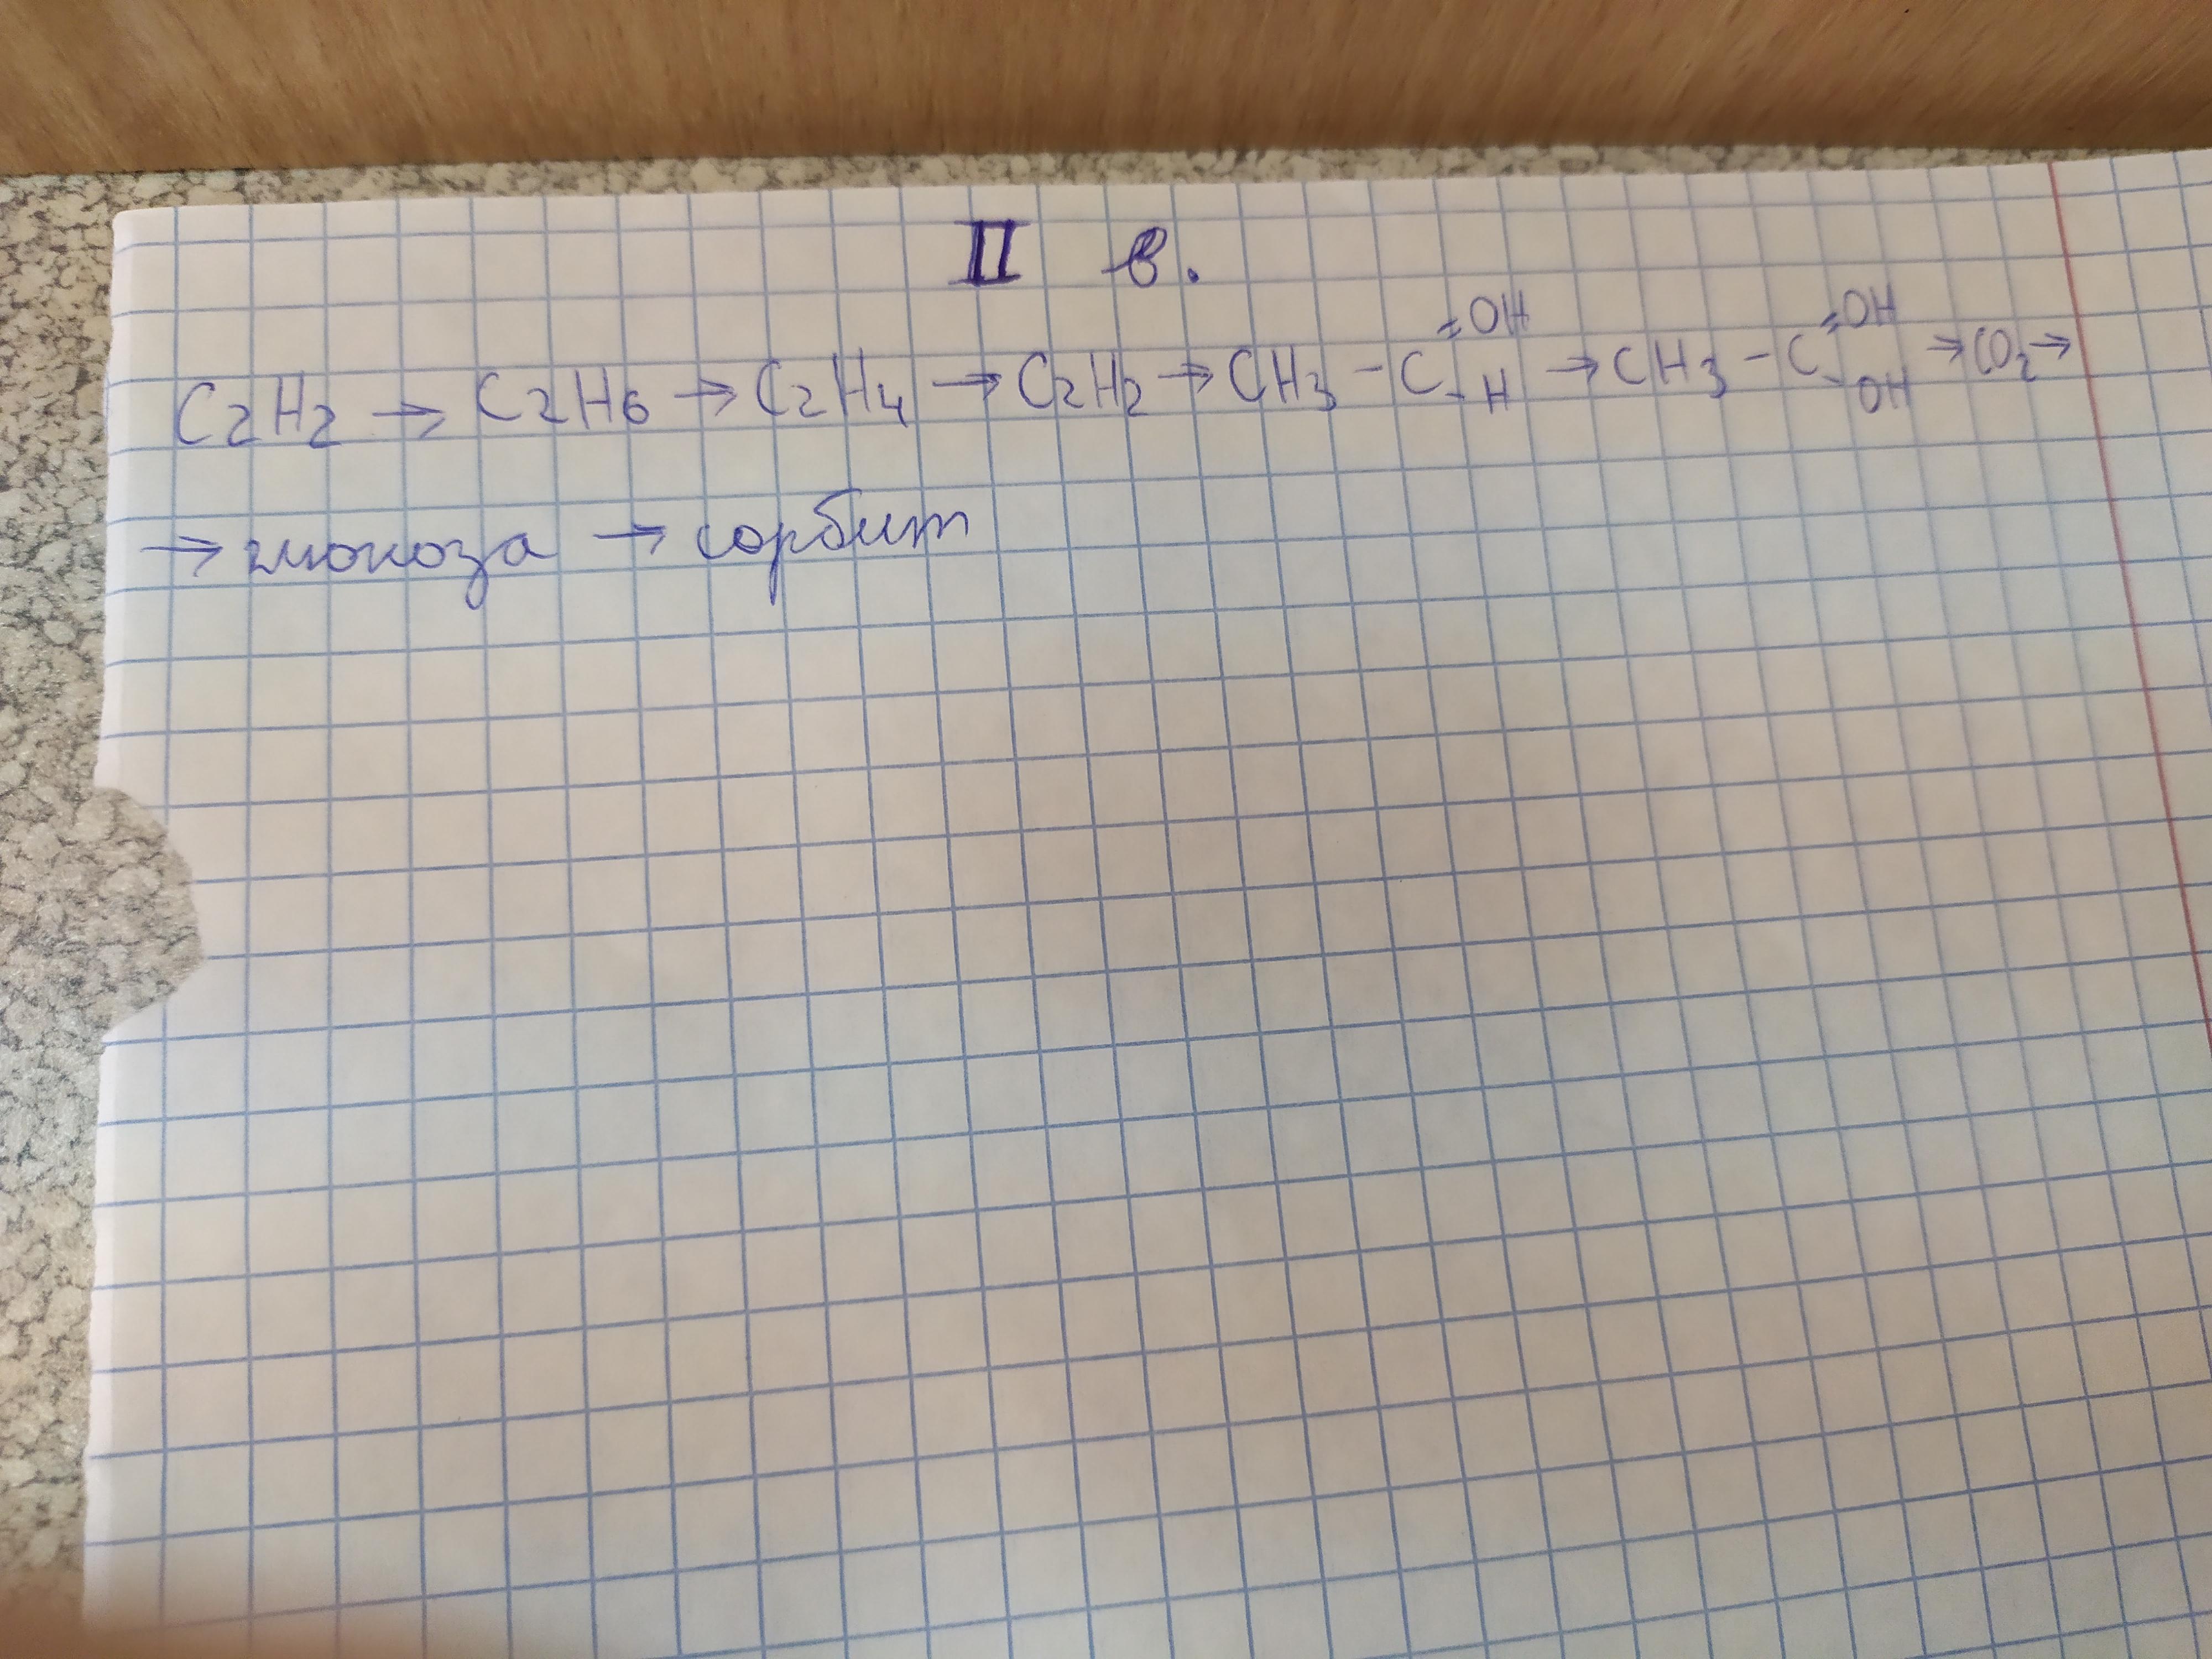 II в.
C2H2 → C2H6 → C2H4 → C2H2 → CH3 - C =OH - H → CH3 - C =OH - OH → CO2 →
→ глюкоза → сорбит